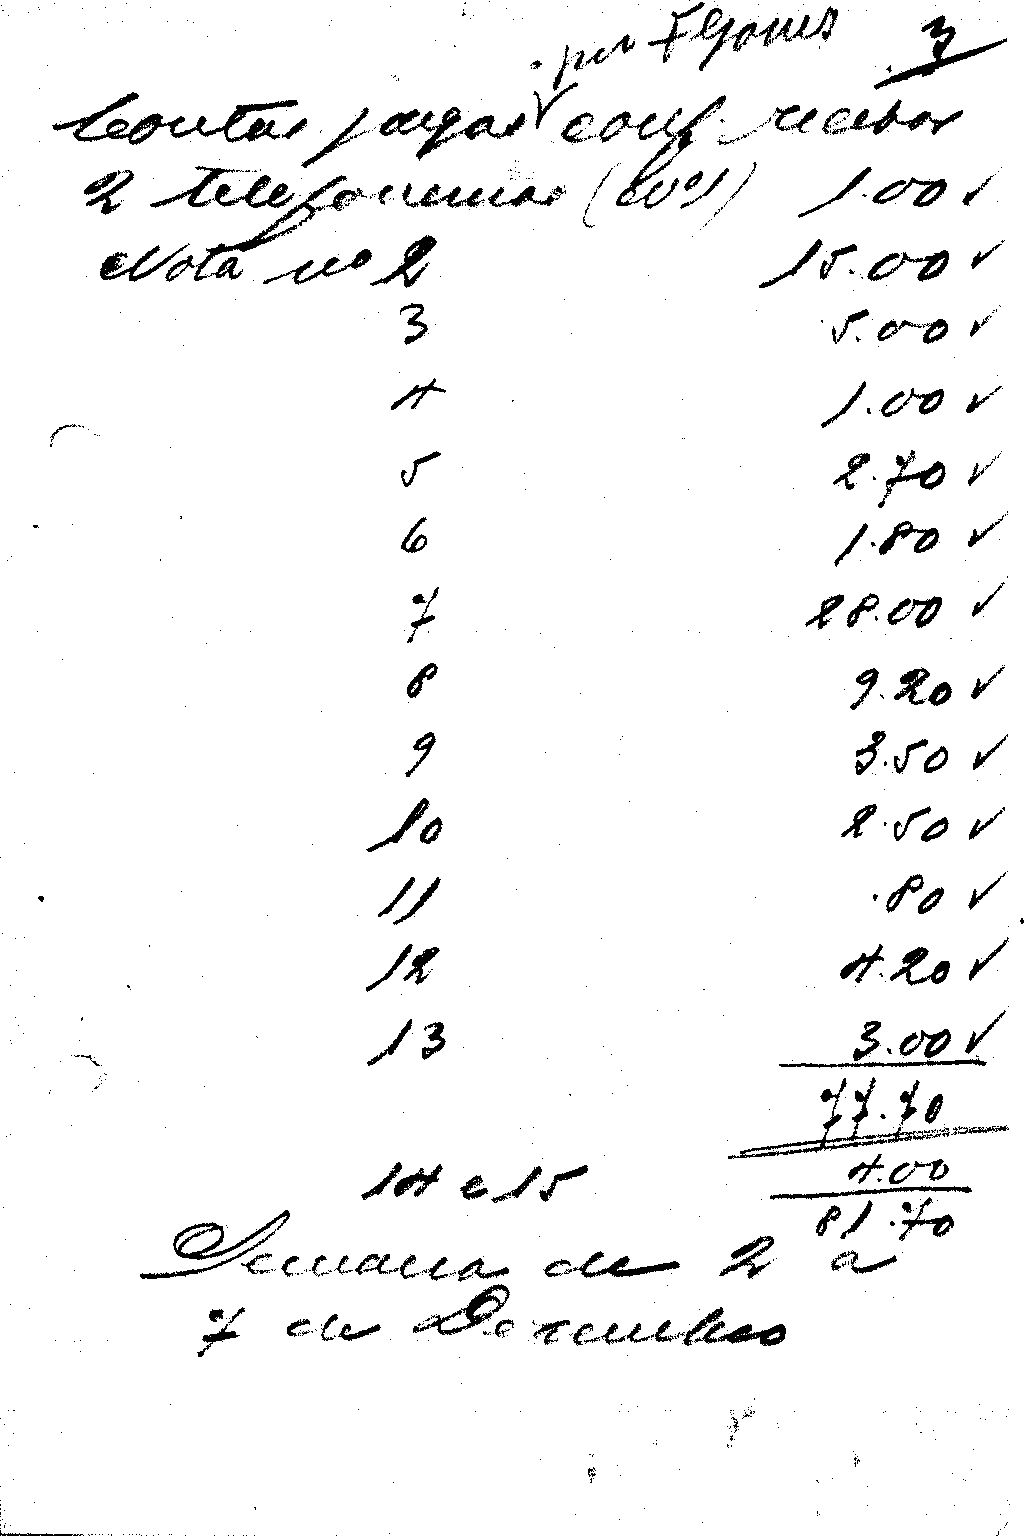 por F Gomes 3
Contas pagas conf. recibos
2 telefonemas (80°) 1.00 ✓
Nota nº 2 15.00 ✓
3 5.00 ✓
4 1.00 ✓
5 2.70 ✓
6 1.80 ✓
7 28.00 ✓
8 9.20 ✓
9 3.50 ✓
10 2.50 ✓
11 .80 ✓
12 4.20 ✓
13 3.00 ✓
77.70
14 e 15 4.00
81.70
Semana de 2 a
7 de Dezembro